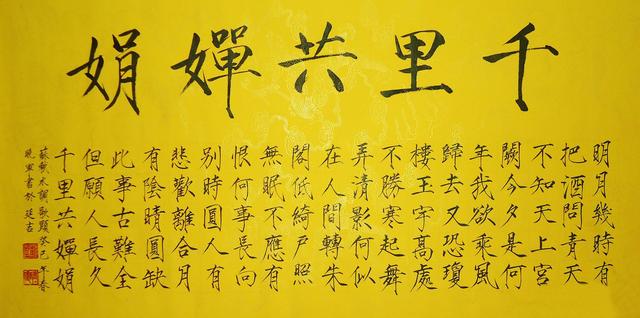 千里共嬋娟
明月幾時有
把酒問青天
不知天上宮
闕今夕是何
年我欲乘風
歸去又恐瓊
樓玉宇高處
不勝寒起舞
弄清影何似
在人間轉朱
閣低綺戶照
無眠不應有
恨何事長向
別時圓人有
悲歡離合月
有陰晴圓缺
此事古難全
但願人長久
千里共嬋娟
蘇軾水調歌頭癸巳年春
曉軍書於延吉